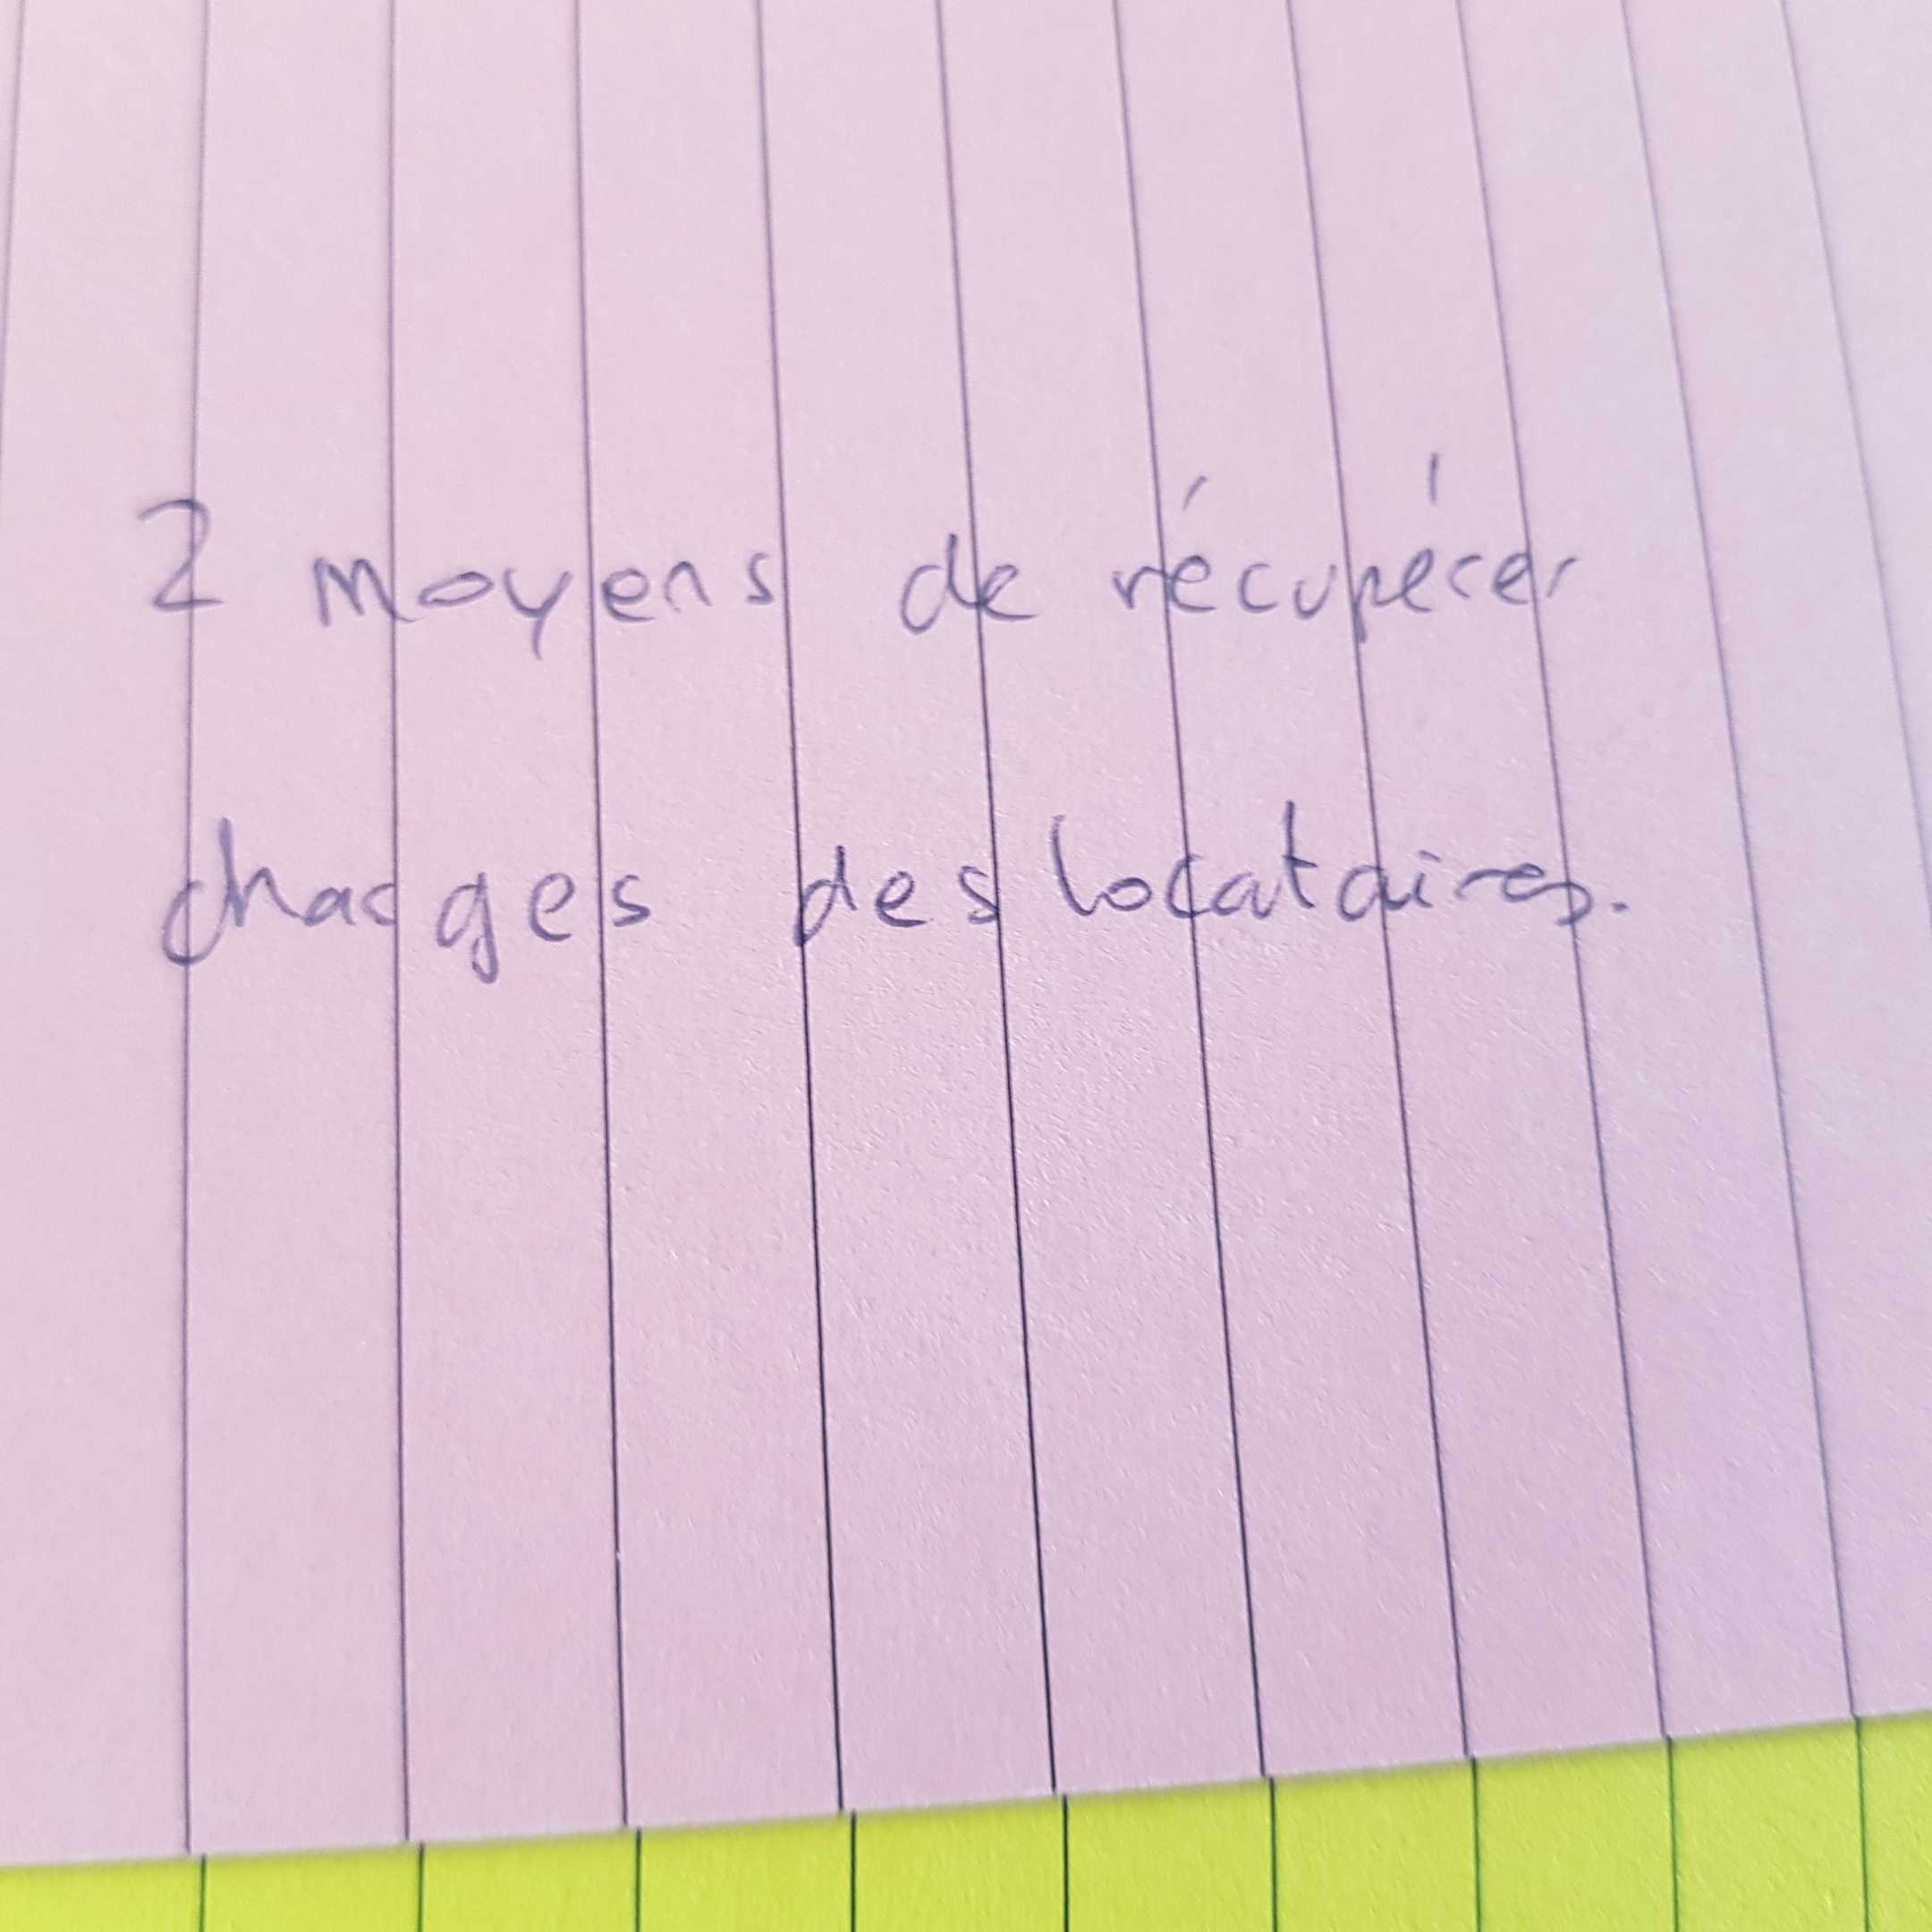 2 moyens de récupérer
charges des locataires.